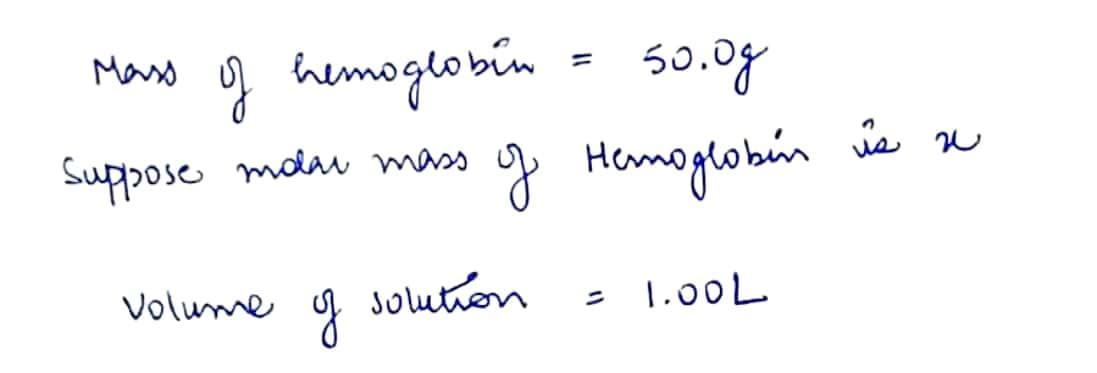 Mass of hemoglobin = 50.0g
Suppose molar mass of Hemoglobin is x
Volume of solution = 1.00L